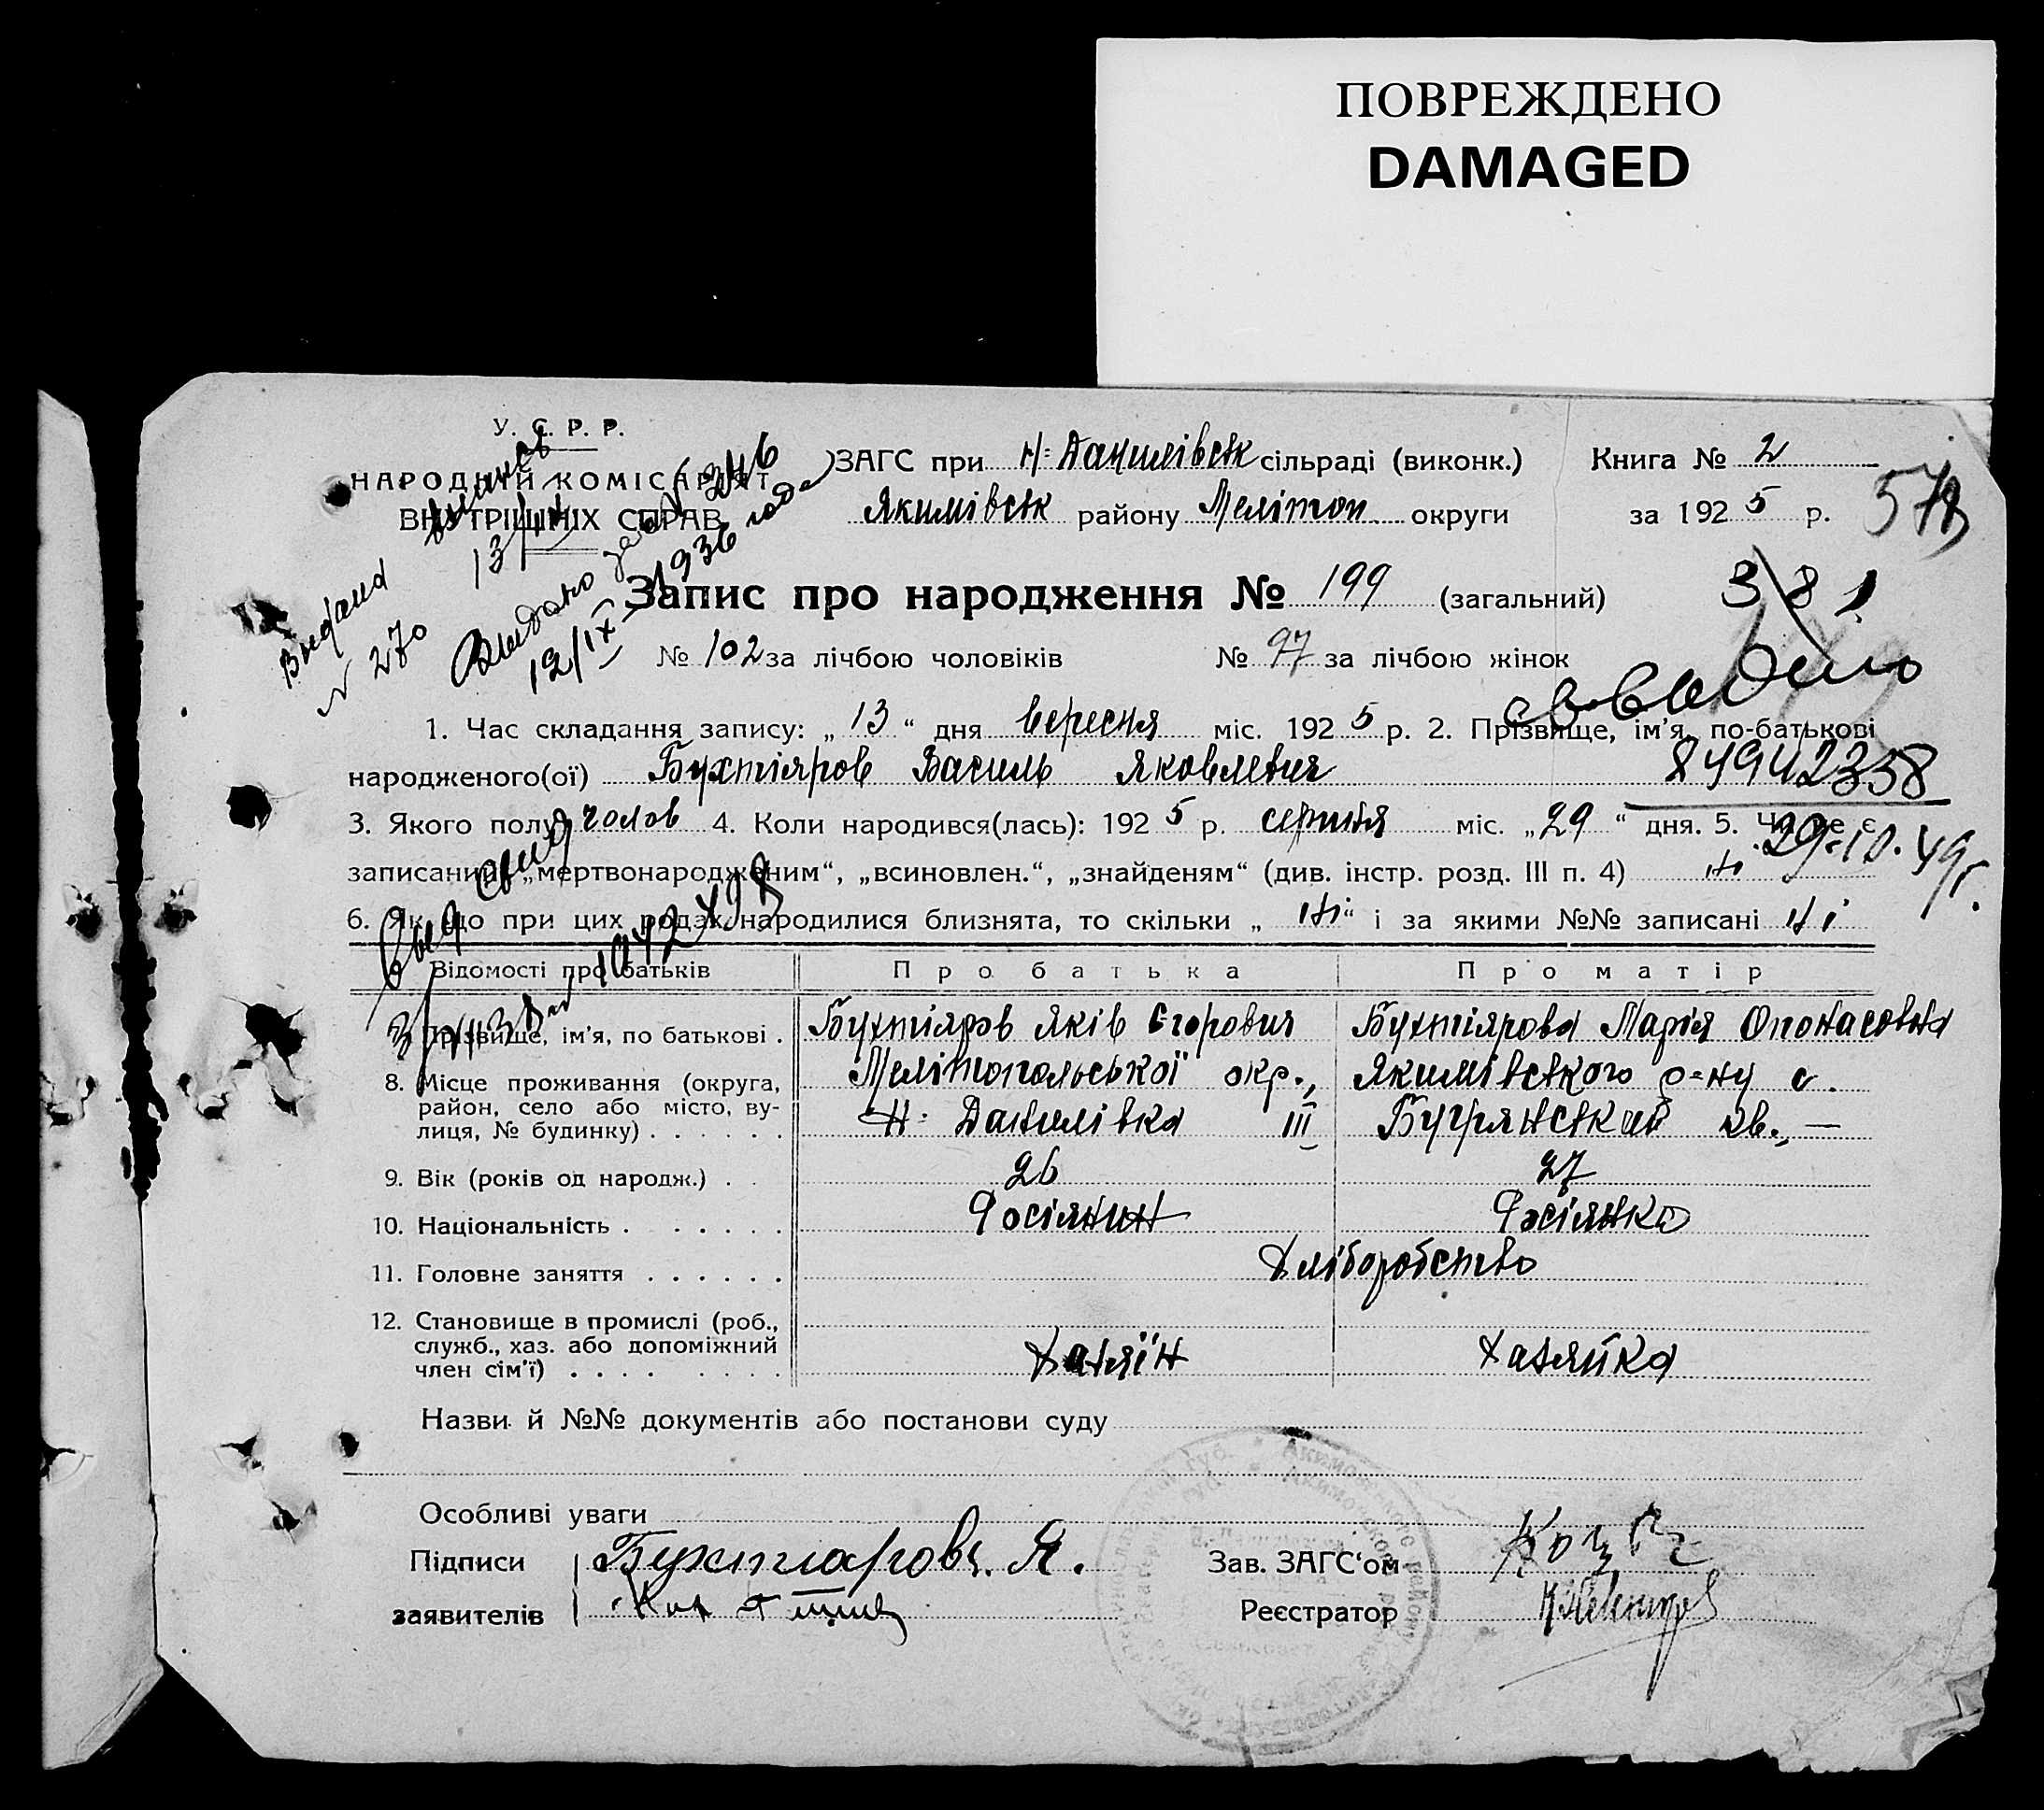 ПОВРЕЖДЕНО
DAMAGED
У. С. Р. Р.
НАРОДНІЙ КОМІСАРІЯТ
ВНУТРІШНІХ СПРАВ
ЗАГС при Н-Данилівськ сільраді (виконк.)
Якимівськ району Мелітоп округи
Книга № 2
за 1925 р.
578
выпись
13/IX
№ 270
Выдано
346
12/IX 1936 года
Запис про народження № 199 (загальний)
381
№ 102 за лічбою чоловіків № 97 за лічбою жінок
1. Час складання запису: „13“ дня вересня міс. 1925 р. 2. Прізвище, ім’я, по-батькові
народженого(ої) Бухтіяров Василь Яковлевич
3. Якого полу чолов 4. Коли народився(лась): 1925 р. серпня міс. „29“ дня. 5. Чи не є
29-10.49г.
записаний: „мертвонародженим“, „всиновлен.“, „знайденям“ (див. інстр. розд. III п. 4) ні
6. Як що при цих родах народилися близнята, то скільки „ні“ і за якими №№ записані ні
Відомості про батьків Про батька Про матір
7. Прізвище, ім’я, по батькові . Бухтіяров Яків Єгорович Бухтіярова Марія Опонасовна
8. Місце проживання (округа, район, село або місто, вулиця, № будинку) . . . . . . Мелітопольської окр., Якимівського р-ну с.
Н-Данилівка III
9. Вік (років од народж.) . . 26 27
10. Національність . . . . . . Росіянин Росіянка
11. Головне заняття . . . . . . Хліборобство
12. Становище в промислі (роб., служб., хаз. або допоміжний член сім’ї) . . . . . . . . Хазяїн Хазяйка
Назви й №№ документів або постанови суду
Особливі уваги
Підписи заявителів Бухтіяров. Я.
Зав. ЗАГС‘ом
Реєстратор